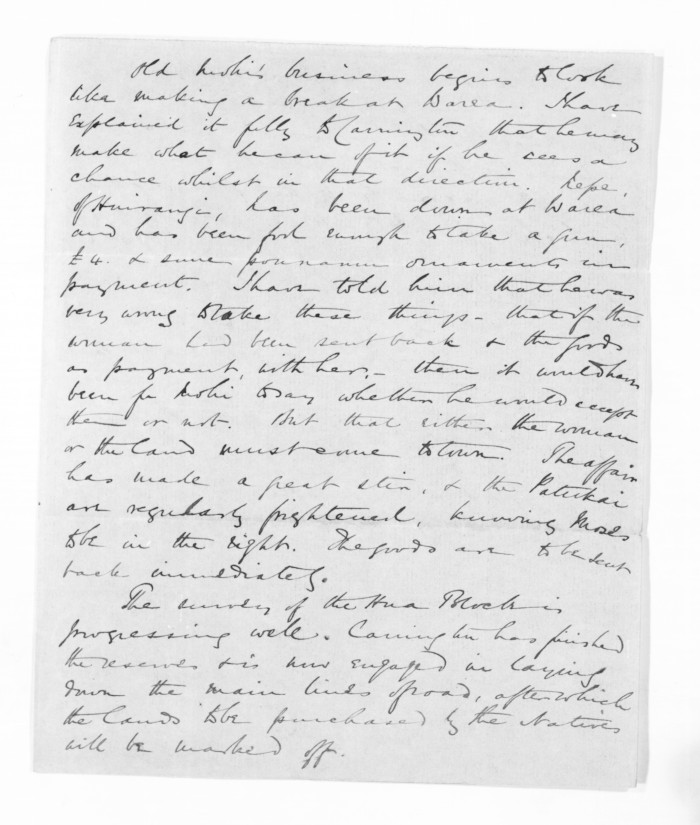 Old Mohi's business begins to look
like making a break at Warea. I have
explained it fully to Carrington that he may
make what he can of it if he sees a
chance whilst in that direction. Kepe,
of Huirangi, has been down at Warea
and has been fool enough to take a gun,
£4. & some pounamu ornaments in
payment. I have told him that he was
very wrong to take these things - that if the
woman had been sent back & the goods
as payment, with her, - then it would have
been for Mohi to say whether he would accept
them or not. But that either the woman
or the land must come to town. The affair
has made a great stir, & the Patukai
are regularly frightened, knowing Moses
to be in the right. The goods are to be sent
back immediately.
The survey of the Hua Block is
progressing well. Carrington has finished
the reserves & is now engaged in laying
down the main lines of road, after which
the lands to be purchased by the Natives
will be marked off.